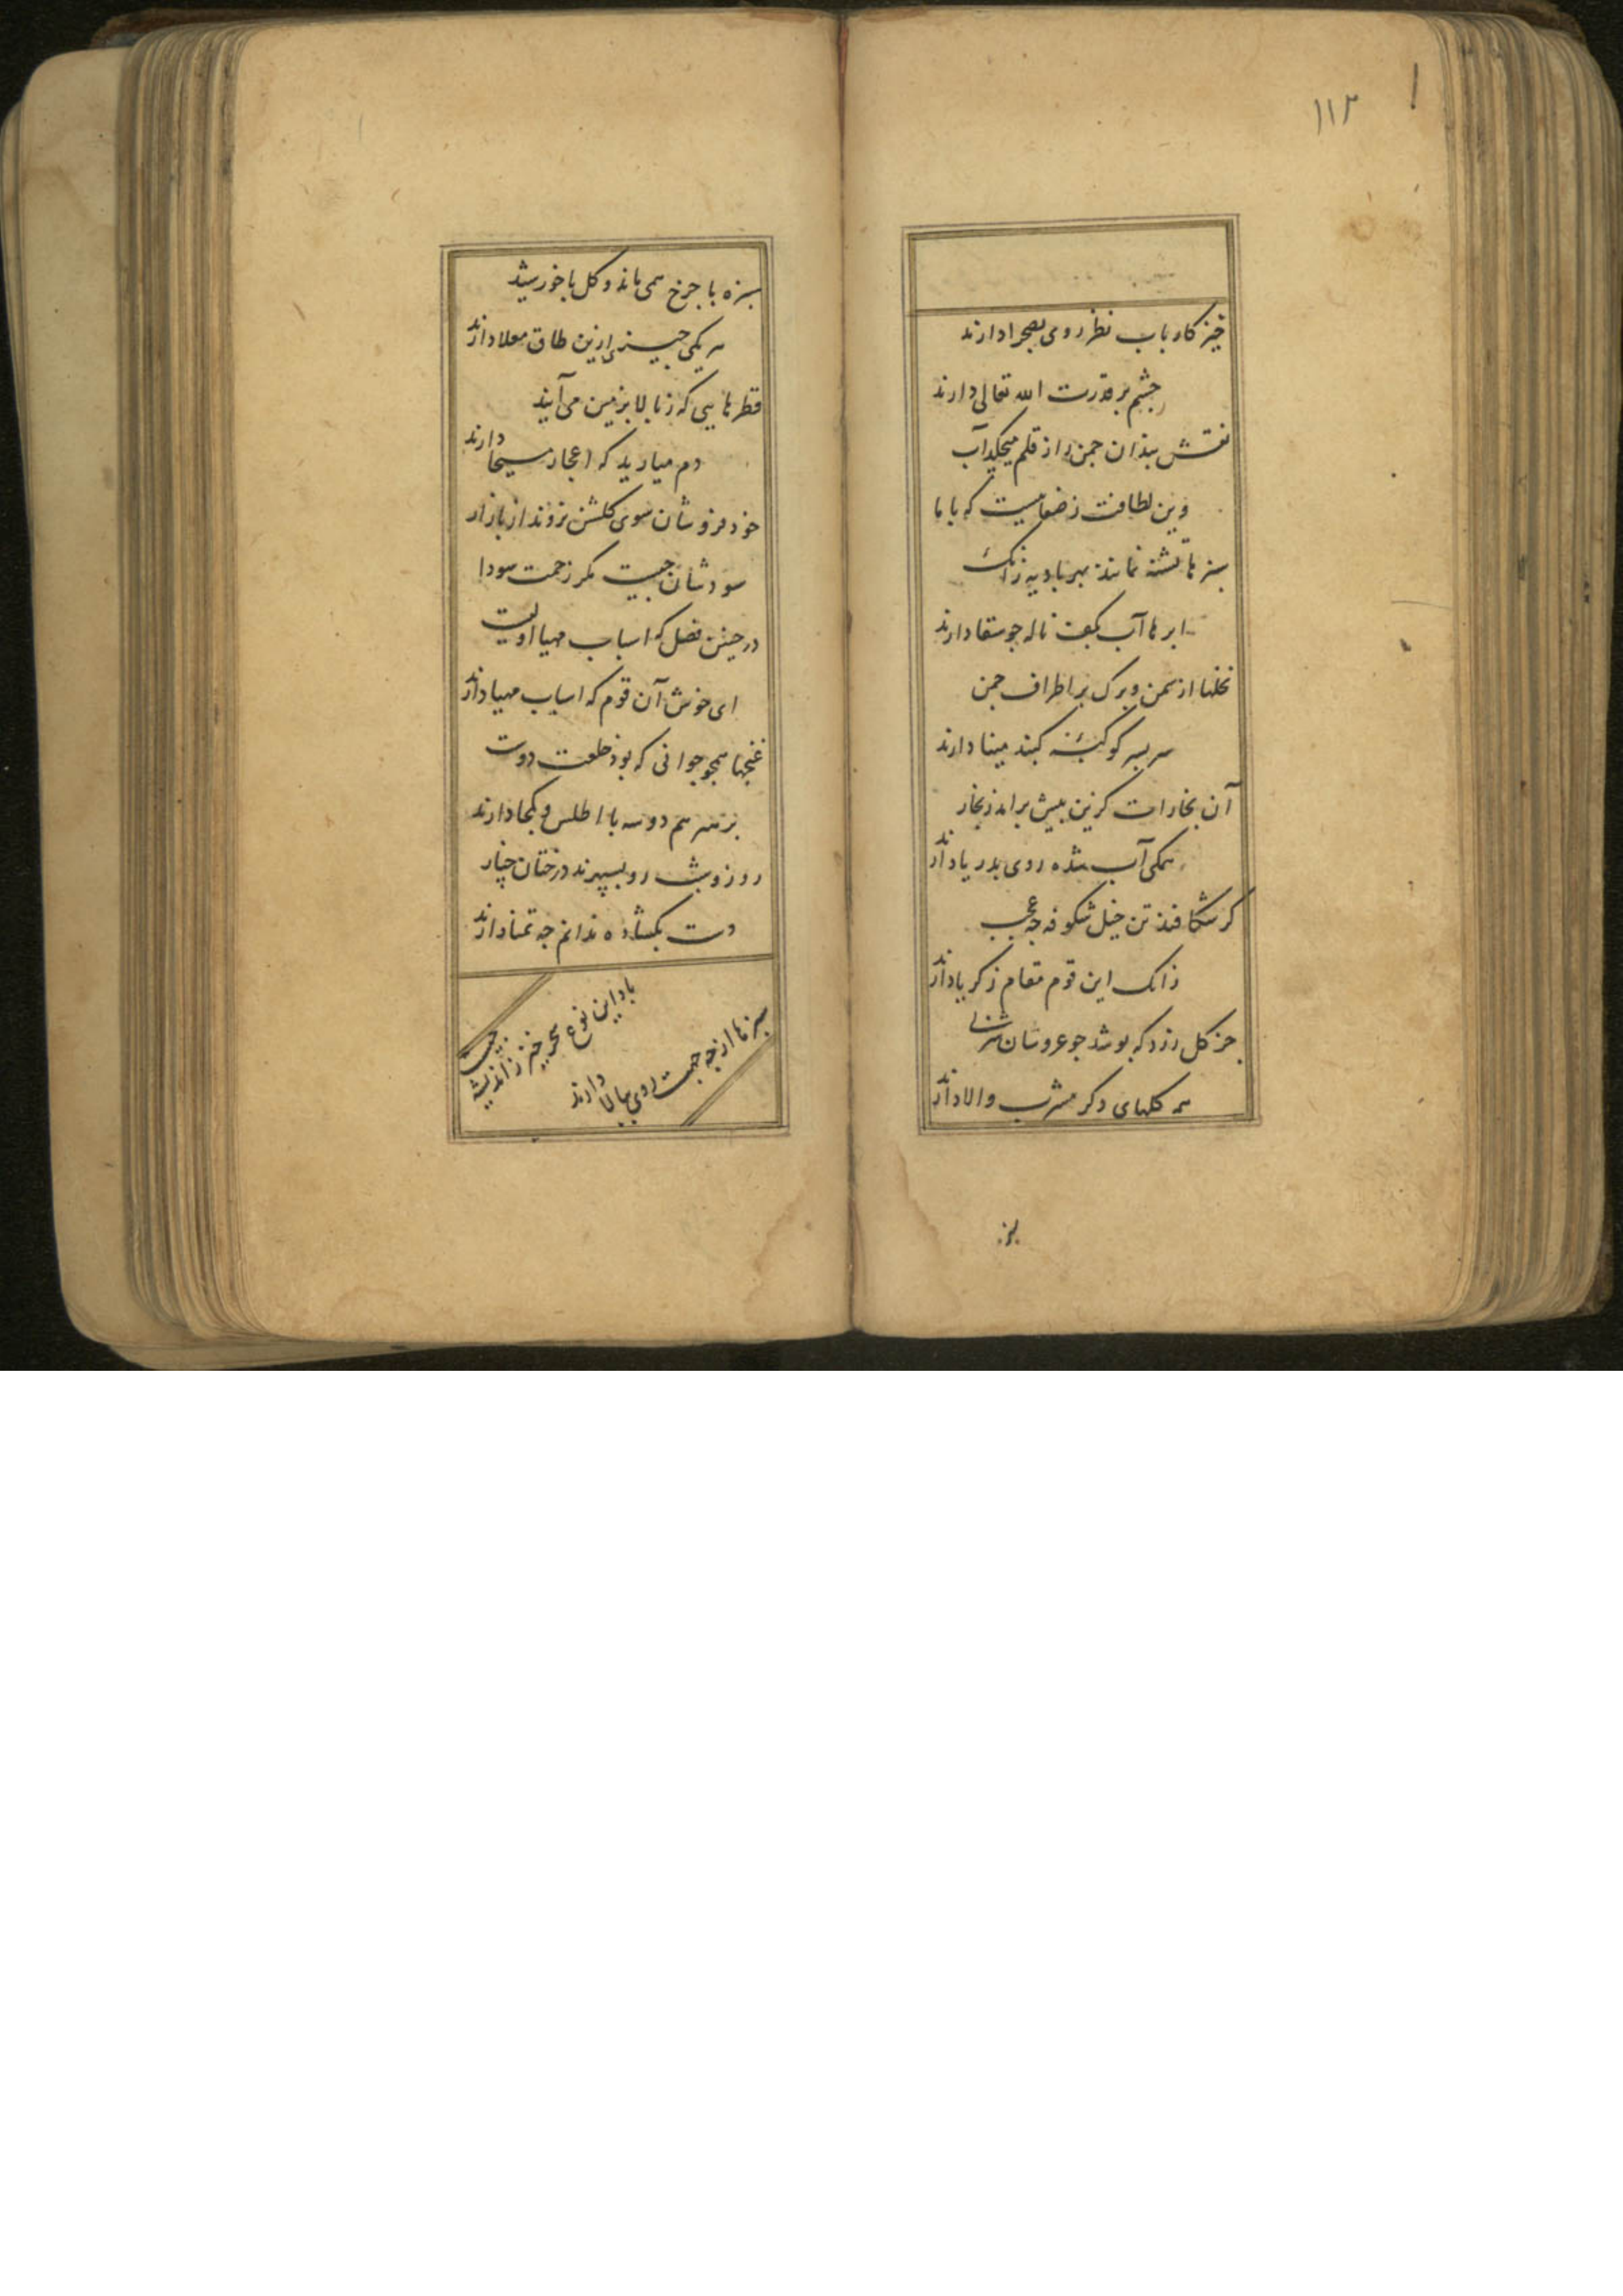 ۱۱۲
خیز کارباب نظر روی بصحرا دارند
چشم بر قدرت الله تعالی دارند
نقش بندان چمن را ز قلم میچکد آب
وین لطافت ز
سبزها تشنه نمانند بهر بادیه زانک
ابرها آب بکف ناله چو سقا دارند
نخلها از سمن و برک بر اطراف جمن
سر بسر کوکبه کنبد مینا دارند
آن بخارات کزین بیش برامد ز بخار
همکی آب شده روی بدریا دارند
کر شکافند تن خیل شکوفه جه عجب
زانک این قوم مقام زکریا دارند
جز کل زرد که بوشد جو عروسان
همه کلهای دکر مشرب والا دارند
سبزه با جرخ همی ماند و کل با خورشید
هر یکی جیزی ازین طاق معلا دارند
قطرهایی که ز بالا بزمین می آیند
دم میارید که اعجاز مسیحا دارند
خودفروشان سوی کلشن نروند از بازار
سودشان جیست مکر زحمت سودا
در جنین فصل که اسباب مهیا اولیست
ای خوش آن قوم که اسباب مهیا دارند
غنجها همجو جوانی که بود خلعت دوست
بر سر هم دو سه با اطلس و کمخا دارند
روز و شب رو بسپهرند درختان چنار
دست بکشاده ندانم جه تمنا دارند
باد این نوع سحر خیز ز اندیشه جیست
سبزها از جه جهت روی ببالا دارند